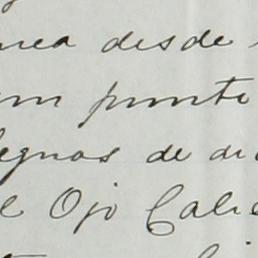 nea desde
un punto
legnas de di
l Ojo Calie